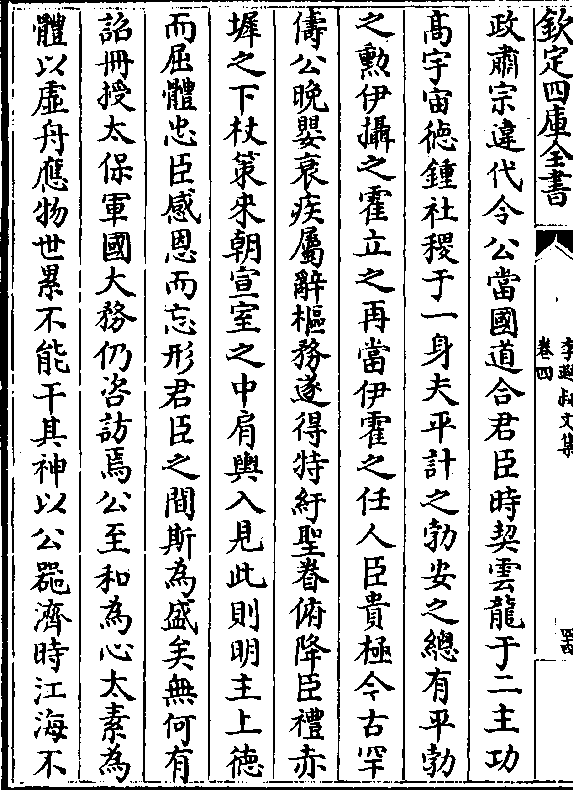 欽定四庫全書
李遐叔文集
卷四
政肅宗違代令公當國道合君臣時契雲龍于二主功
高宇宙德鍾社稷于一身夫平計之勃安之總有平勃
之勲伊攝之霍立之再當伊霍之任人臣貴極今古罕
儔公晚嬰衰疾屬辭樞務遂得特紆聖眷俯降臣禮赤
墀之下杖策來朝宣室之中肩輿入見此則明主上德
而屈體忠臣感恩而忘形君臣之間斯為盛矣無何有
詔冊授太保軍國大務仍咨訪焉公至和為心太素為
體以虛舟應物世累不能干其神以公器濟時江海不